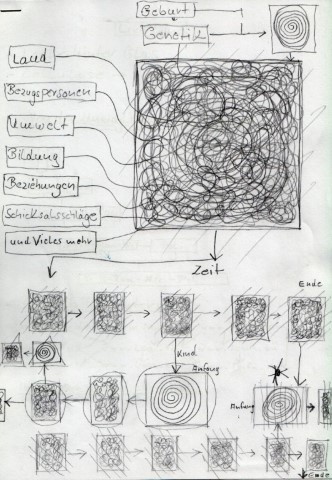 Geburt
Genetik
Land
Bezugspersonen
Umwelt
Bildung
Beziehungen
Schicksalsschläge
und Vieles mehr
Zeit
Ende
Kind
Anfang
Anfang
Ende